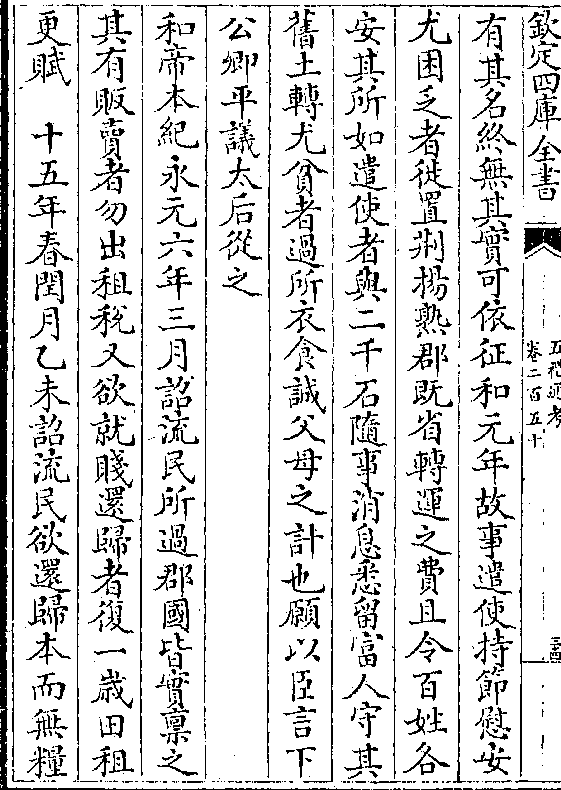 欽定四庫全書
五禮通考
卷二百五十
三四
有其名終無其實可依征和元年故事遣使持節慰安
尤困乏者徙置荆揚熟郡既省轉運之費且令百姓各
安其所如遣使者與二千石隨事消息悉留富人守其
舊土轉尤貧者過所衣食誠父母之計也願以臣言下
公卿平議太后從之
和帝本紀永元六年三月詔流民所過郡國皆實稟之
其有販賣者勿出租稅又欲就賤還歸者復一歲田租
更賦 十五年春閏月乙未詔流民欲還歸本而無糧